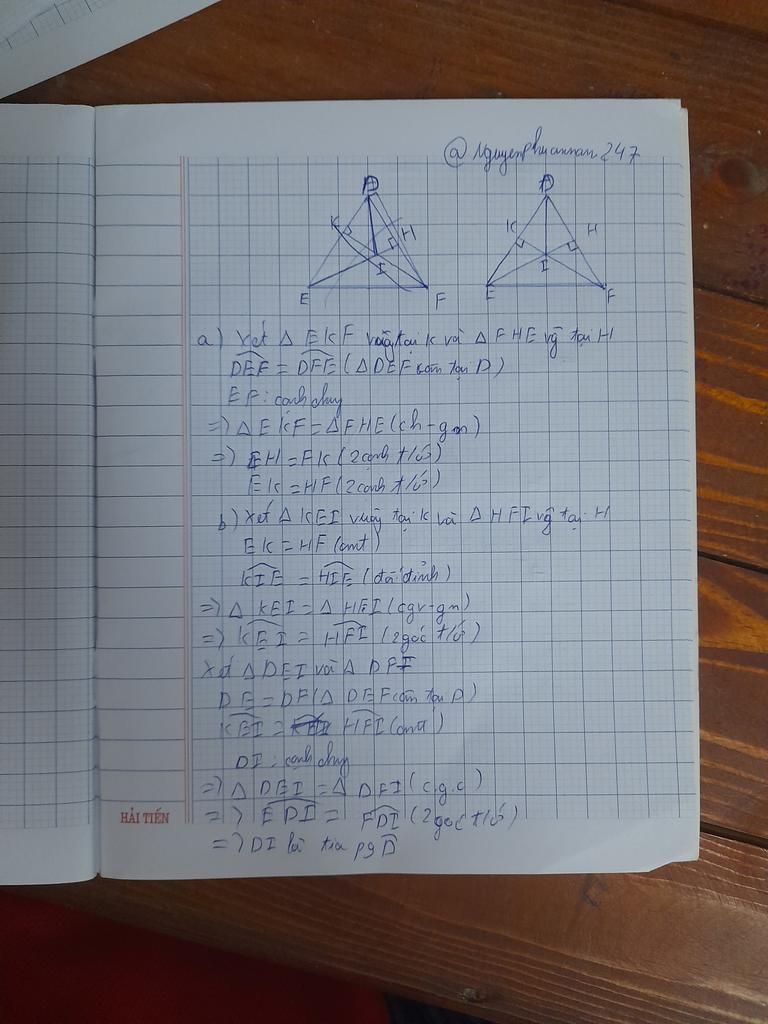 @Nguyenphuannan247
D
K
H
I
E
F
D
K
H
I
E
F
a) Xét Δ EKF vuông tại K và Δ FHE vg tại H
DEF = DFE (Δ DEF cân tại D)
EF: cạnh chung
=) Δ EKF = Δ FHE (ch - gn)
=) EH = FK (2 cạnh t/ứ)
EK = HF (2 cạnh t/ứ)
b) Xét Δ KEI vuông tại K và Δ HFI vg tại H
EK = HF (cmt)
KIE = HIE (đối đỉnh)
=) Δ KEI = Δ HFI (cgv - gn)
=) KEI = HFI (2 góc t/ứ)
Xét Δ DEI và Δ DFI
DE = DF (Δ DEF cân tại D)
KEI = HFI (cmt)
DI: cạnh chung
=) Δ DEI = Δ DFI (c.g.c)
=) EDI = FDI (2 góc t/ứ)
=) DI là tia pg D
HẢI TIẾN